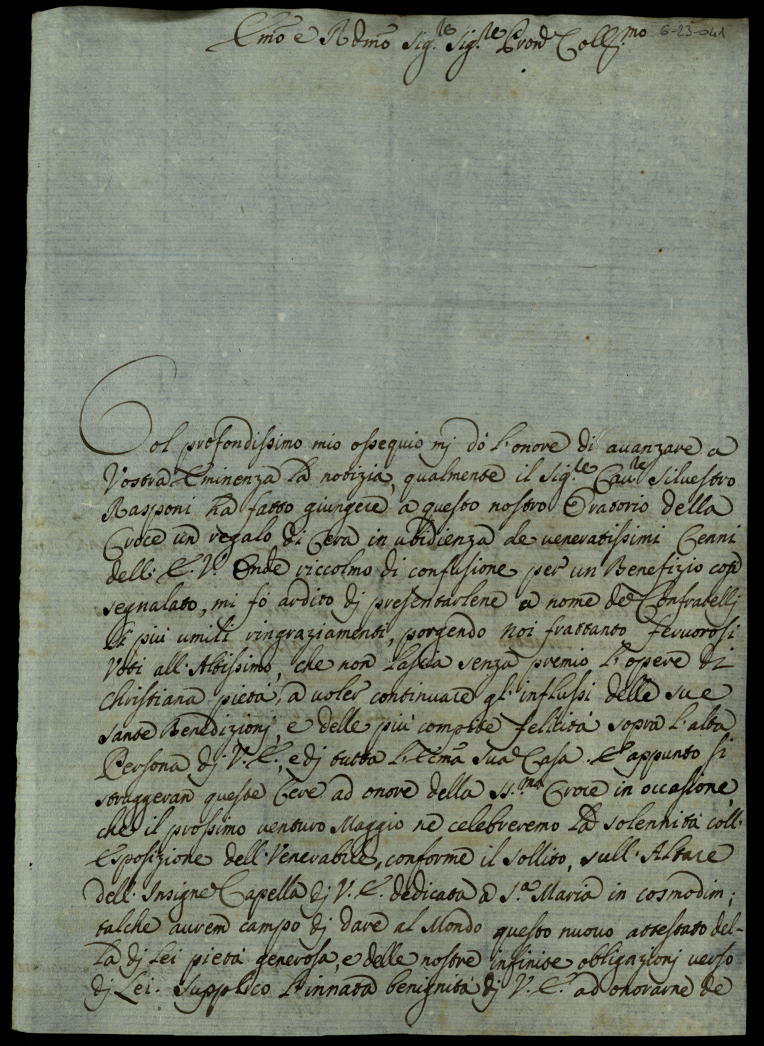 Emo e Rdmo Sig.re Sig.re Pron Coll.mo 6-23-041
Col profondissimo mio ossequio mj dò l'onore di avanzare a
Vostra Eminenza la notizia, qualmente il Sig.re Cav.re Silvestro
Rasponi ha fatto giungere a questo nostro Oratorio della
Croce un regalo di Cera in ubidienza de veneratissimi Cenni
dell'E.V. Onde riccolmo di confusione per un Benefizio così
segnalato, mi fò ardito dj presentarlene a nome de Confratellj
li più umili ringraziamenti, porgendo noi frattanto fervorosi
Voti all'Altissimo, che non lascia senza premio l'opere di
Christiana pietà, a voler continuare gl'influssi delle sue
sante Benedizionj, e delle più compite felicità sopra l'alta
Persona dj V.E., e dj tutta l'Ecma sua Casa. E appunto si
struggeran queste Cere ad onore della SS.ma Croce in occasione,
che il prossimo venturo Maggio ne celebreremo la solennità coll'
Esposizione dell'Venerabile, conforme il sollito, sull'Altare
dell'Insigne Capella dj V.E. dedicata a S.a Maria in cosmodin;
talche aurem campo dj dare al Mondo questo nuovo attestato del-
la dj Lei pietà generosa, e delle nostre infinite obligazionj verso
dj Lei. Supplico l'innata benignità dj V.E. ad onorarne de